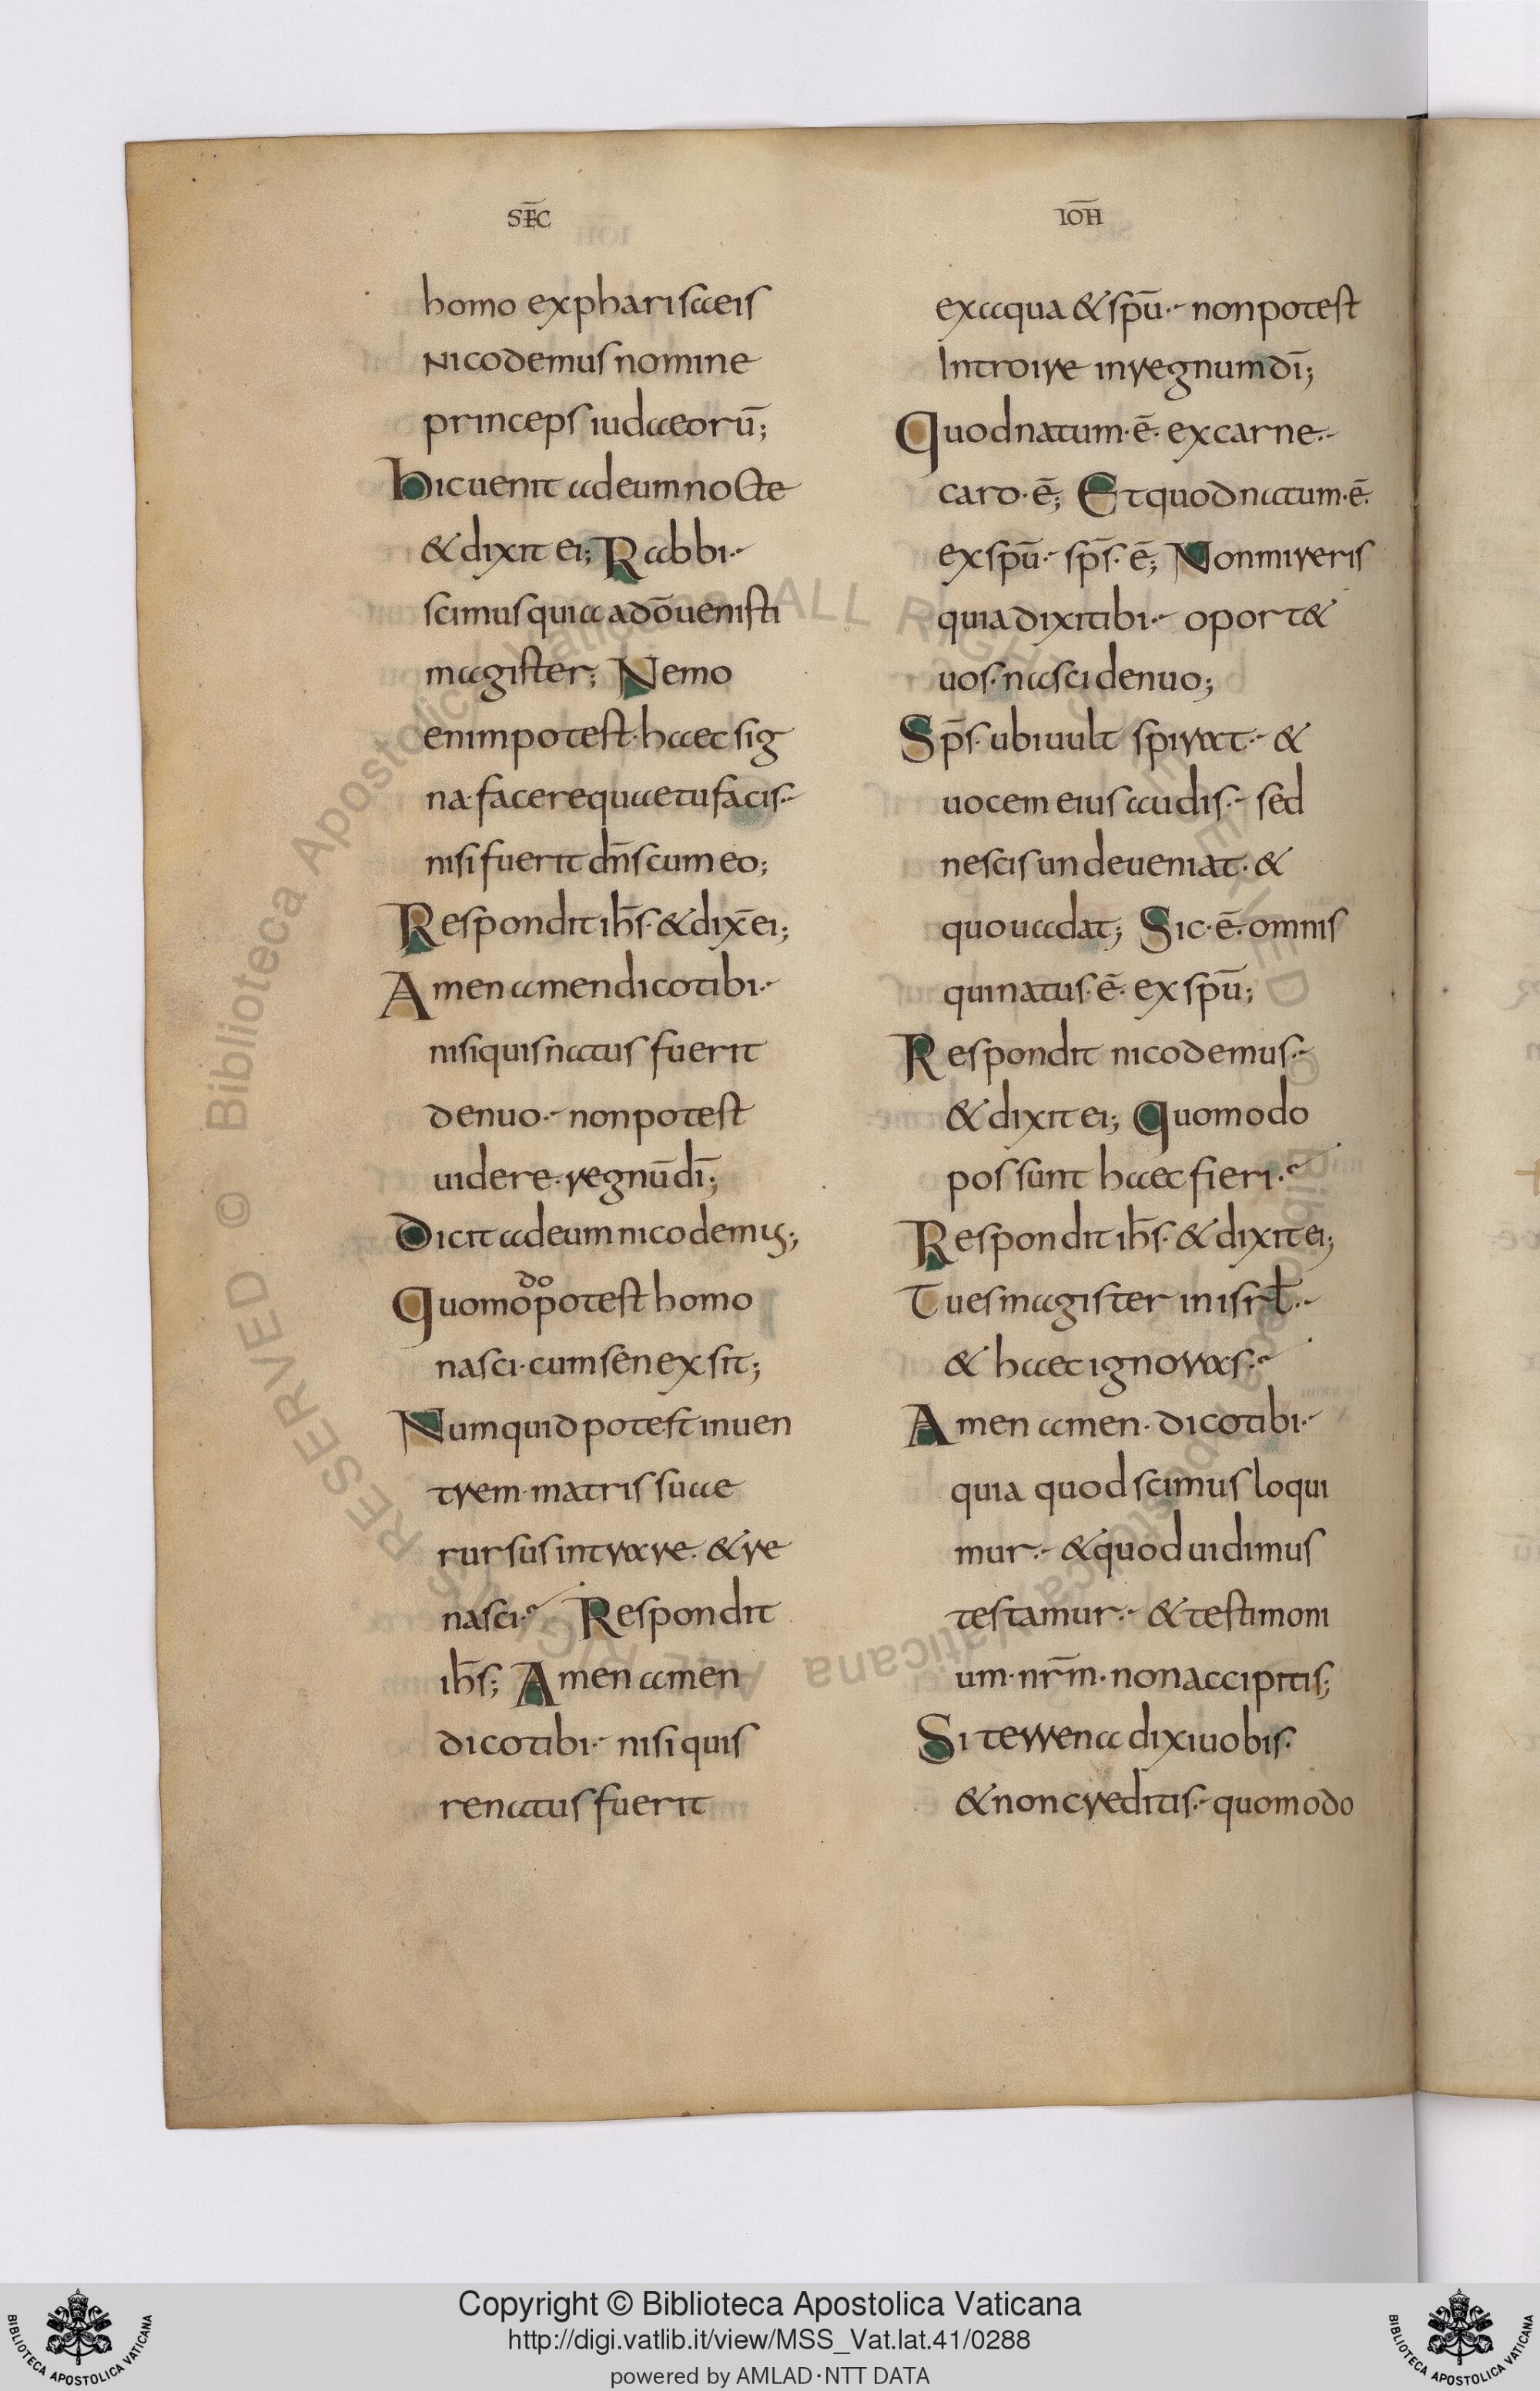 SEC̄
homo expharisaeis
Nicodemus nomine
princeps iudaeorū;
hic uenit adeum nocte
& dixit ei; Rabbi.
scimus quia adō uenisti
magister; Nemo
enim potest. haec sig
na. facere quae tu facis.
nisi fuerit dn̄s cum eo;
Respondit ih̄s. & dix̄ ei;
Amen amen dico tibi.
nisi quis natus fuerit
denuo. non potest
uidere. regnū dī;
Dicit adeum nicodemus;
Quomodo potest homo
nasci. cum senex sit;
Numquid potest inuen
trem. matris suae
rursus intrare. & re
nasci. Respondit
ih̄s; Amen amen
dico tibi. nisi quis
renatus fuerit
IOH̄
ex aqua & spū. non potest
Introire in regnum dī;
Quod natum. ē. ex carne.
caro. ē; Et quod natum. ē.
ex spū. sp̄s. ē; Non mireris
quia dixi tibi. oport&
uos. nasci denuo;
Sp̄s. ubi uult spirat. &
uocem eius audis. sed
nescis unde ueniat. &
quo uadat; Sic. ē. omnis
qui natus. ē. ex spū;
Respondit nicodemus.
& dixit ei; Quomodo
possunt haec fieri.
Respondit ih̄s. & dixit ei;
Tu es magister in isrł.
& haec ignoras.
Amen amen. dico tibi.
quia quod scimus loqui
mur. & quod uidimus
testamur. & testimoni
um. nr̄m. non accipitis;
Si terrena dixi uobis.
& non creditis. quomodo
© Biblioteca Apostolica Vaticana ALL RIGHTS RESERVED © Biblioteca Apostolica Vaticana ALL RIGHTS RESERVED
Copyright © Biblioteca Apostolica Vaticana
http://digi.vatlib.it/view/MSS_Vat.lat.41/0288
powered by AMLAD·NTT DATA
BIBLIOTECA APOSTOLICA VATICANA
BIBLIOTECA APOSTOLICA VATICANA